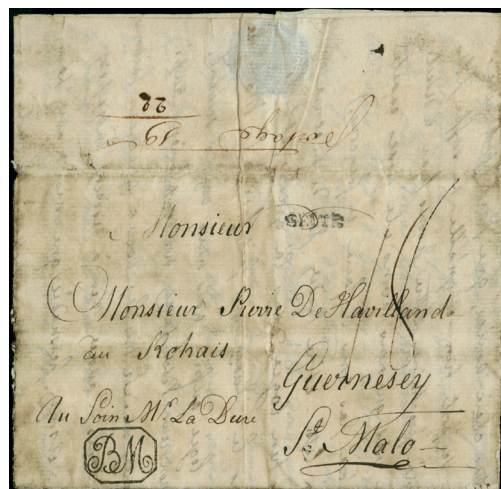 22
19
Monsieur
18
Monsieur Pierre De Havilland
au Rohais
Guernesey
Au Soin Mr. La Dure
St. Malo
BM